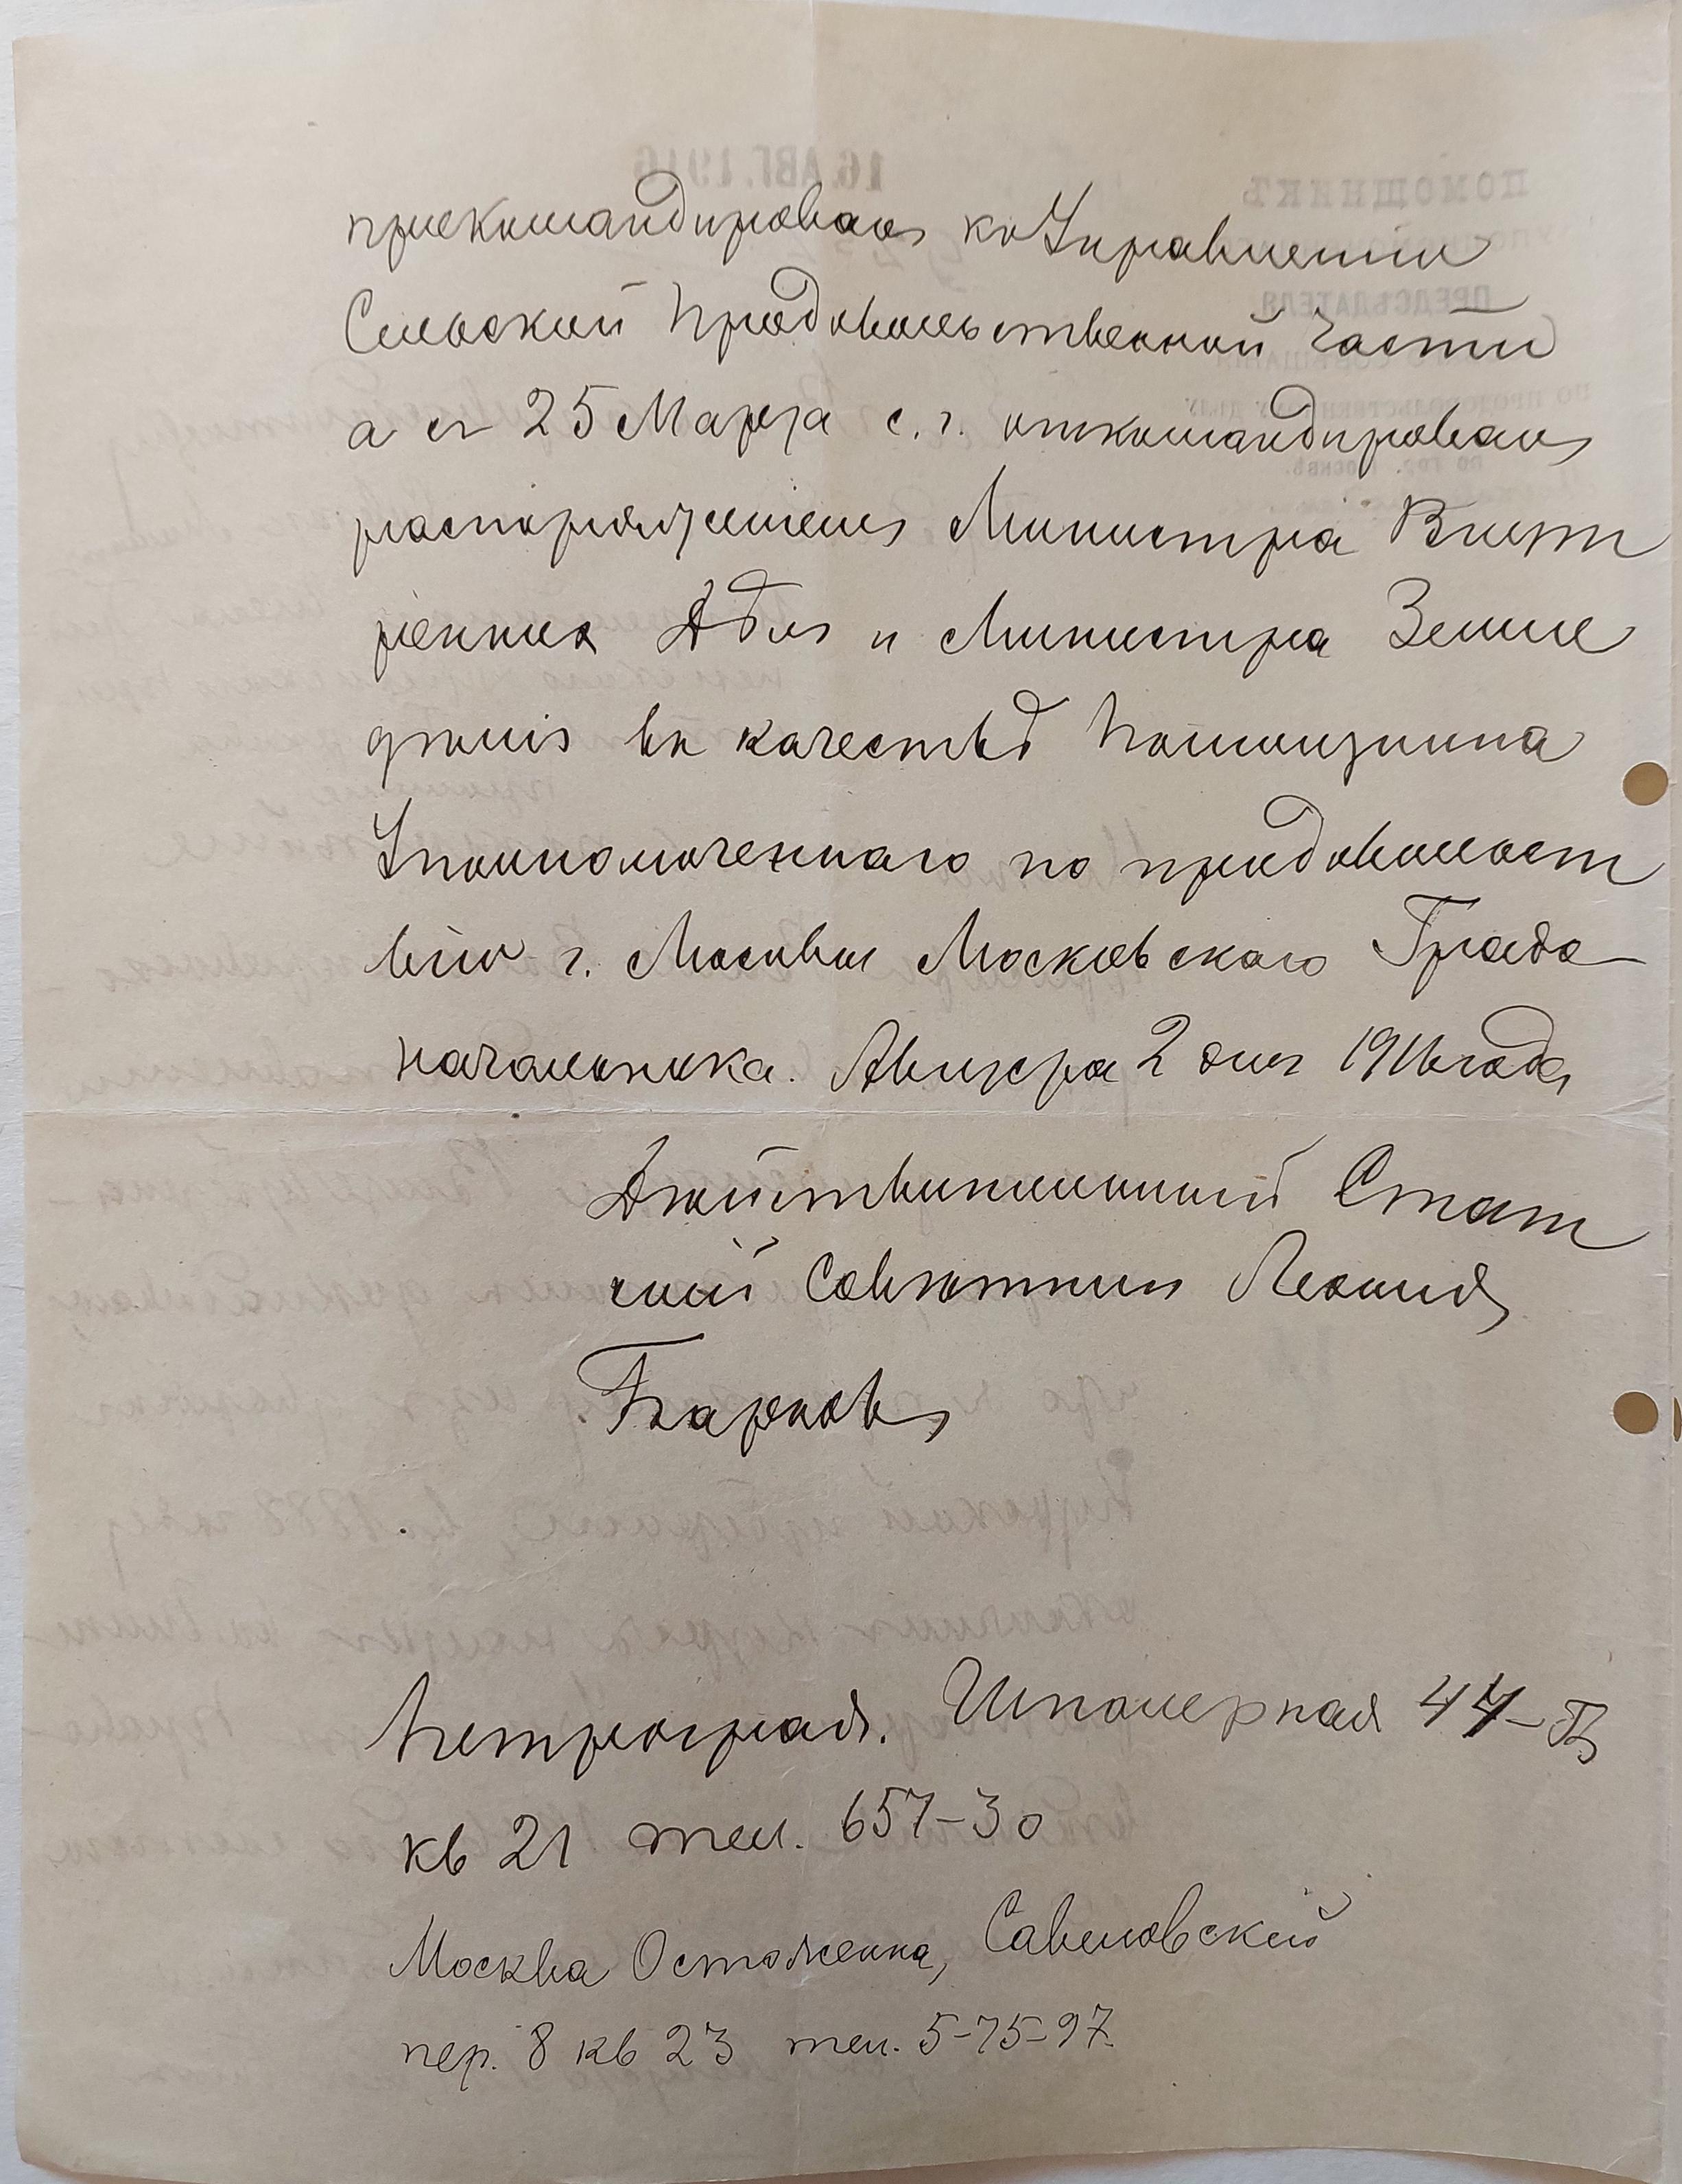 прикомандированъ ко Управленiю
Сельской Продовольственной части
а съ 25 Марта с. г. откомандированъ
распоряженiемъ Министра Внут
реннихъ Дѣлъ и Министра Земле
дѣлiя въ качествѣ Помощника
Уполномоченнаго по продовольст
вiю г. Москвы Московскаго Градо-
начальника. Августа 2 дня 1916 года
Дѣйствительный Стат
скiй Совѣтникъ Леонидъ
Барковъ
Петроградъ. Шпалерная 44-Б
кв 21 тел. 657-30
Москва Остоженка, Савеловскiй
пер. 8 кв 23 тел. 5-75-97.